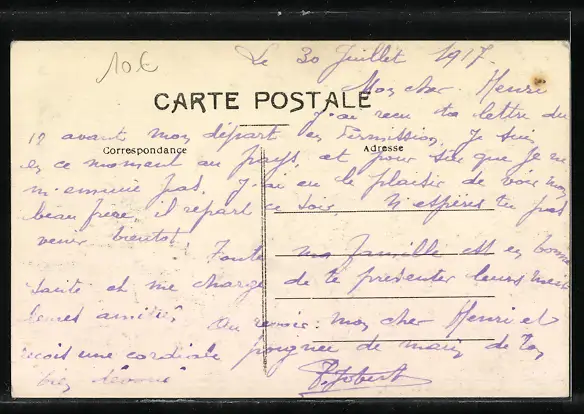 10€
Le 30 Juillet 1917.
Mon cher Henri
CARTE POSTALE
J'ai reçu ta lettre du
12 avant mon départ en permission. Je suis
Correspondance
Adresse
en ce moment au pays, et pour sûr que je ne
m'ennuie pas. J'ai eu le plaisir de voir mon
beau frère, il repart ce soir. N'espères tu pas
venir bientôt.
Toute ma famille est en bonne
santé et me charge de te présenter leurs meil
leures amitiés
Au revoir mon cher Henri et
reçois une cordiale poignée de main de ton
bien dévoué
P. Jobert